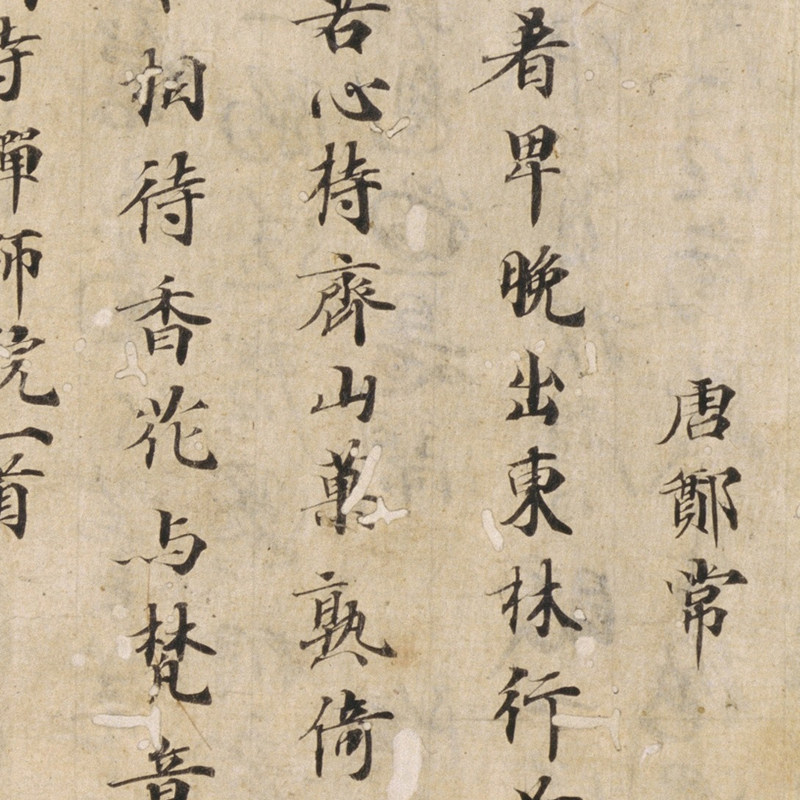 唐鄭常
著早晚出東林行
若心持齊山菓熟倚
相待香花与梵音
持禪師院一首